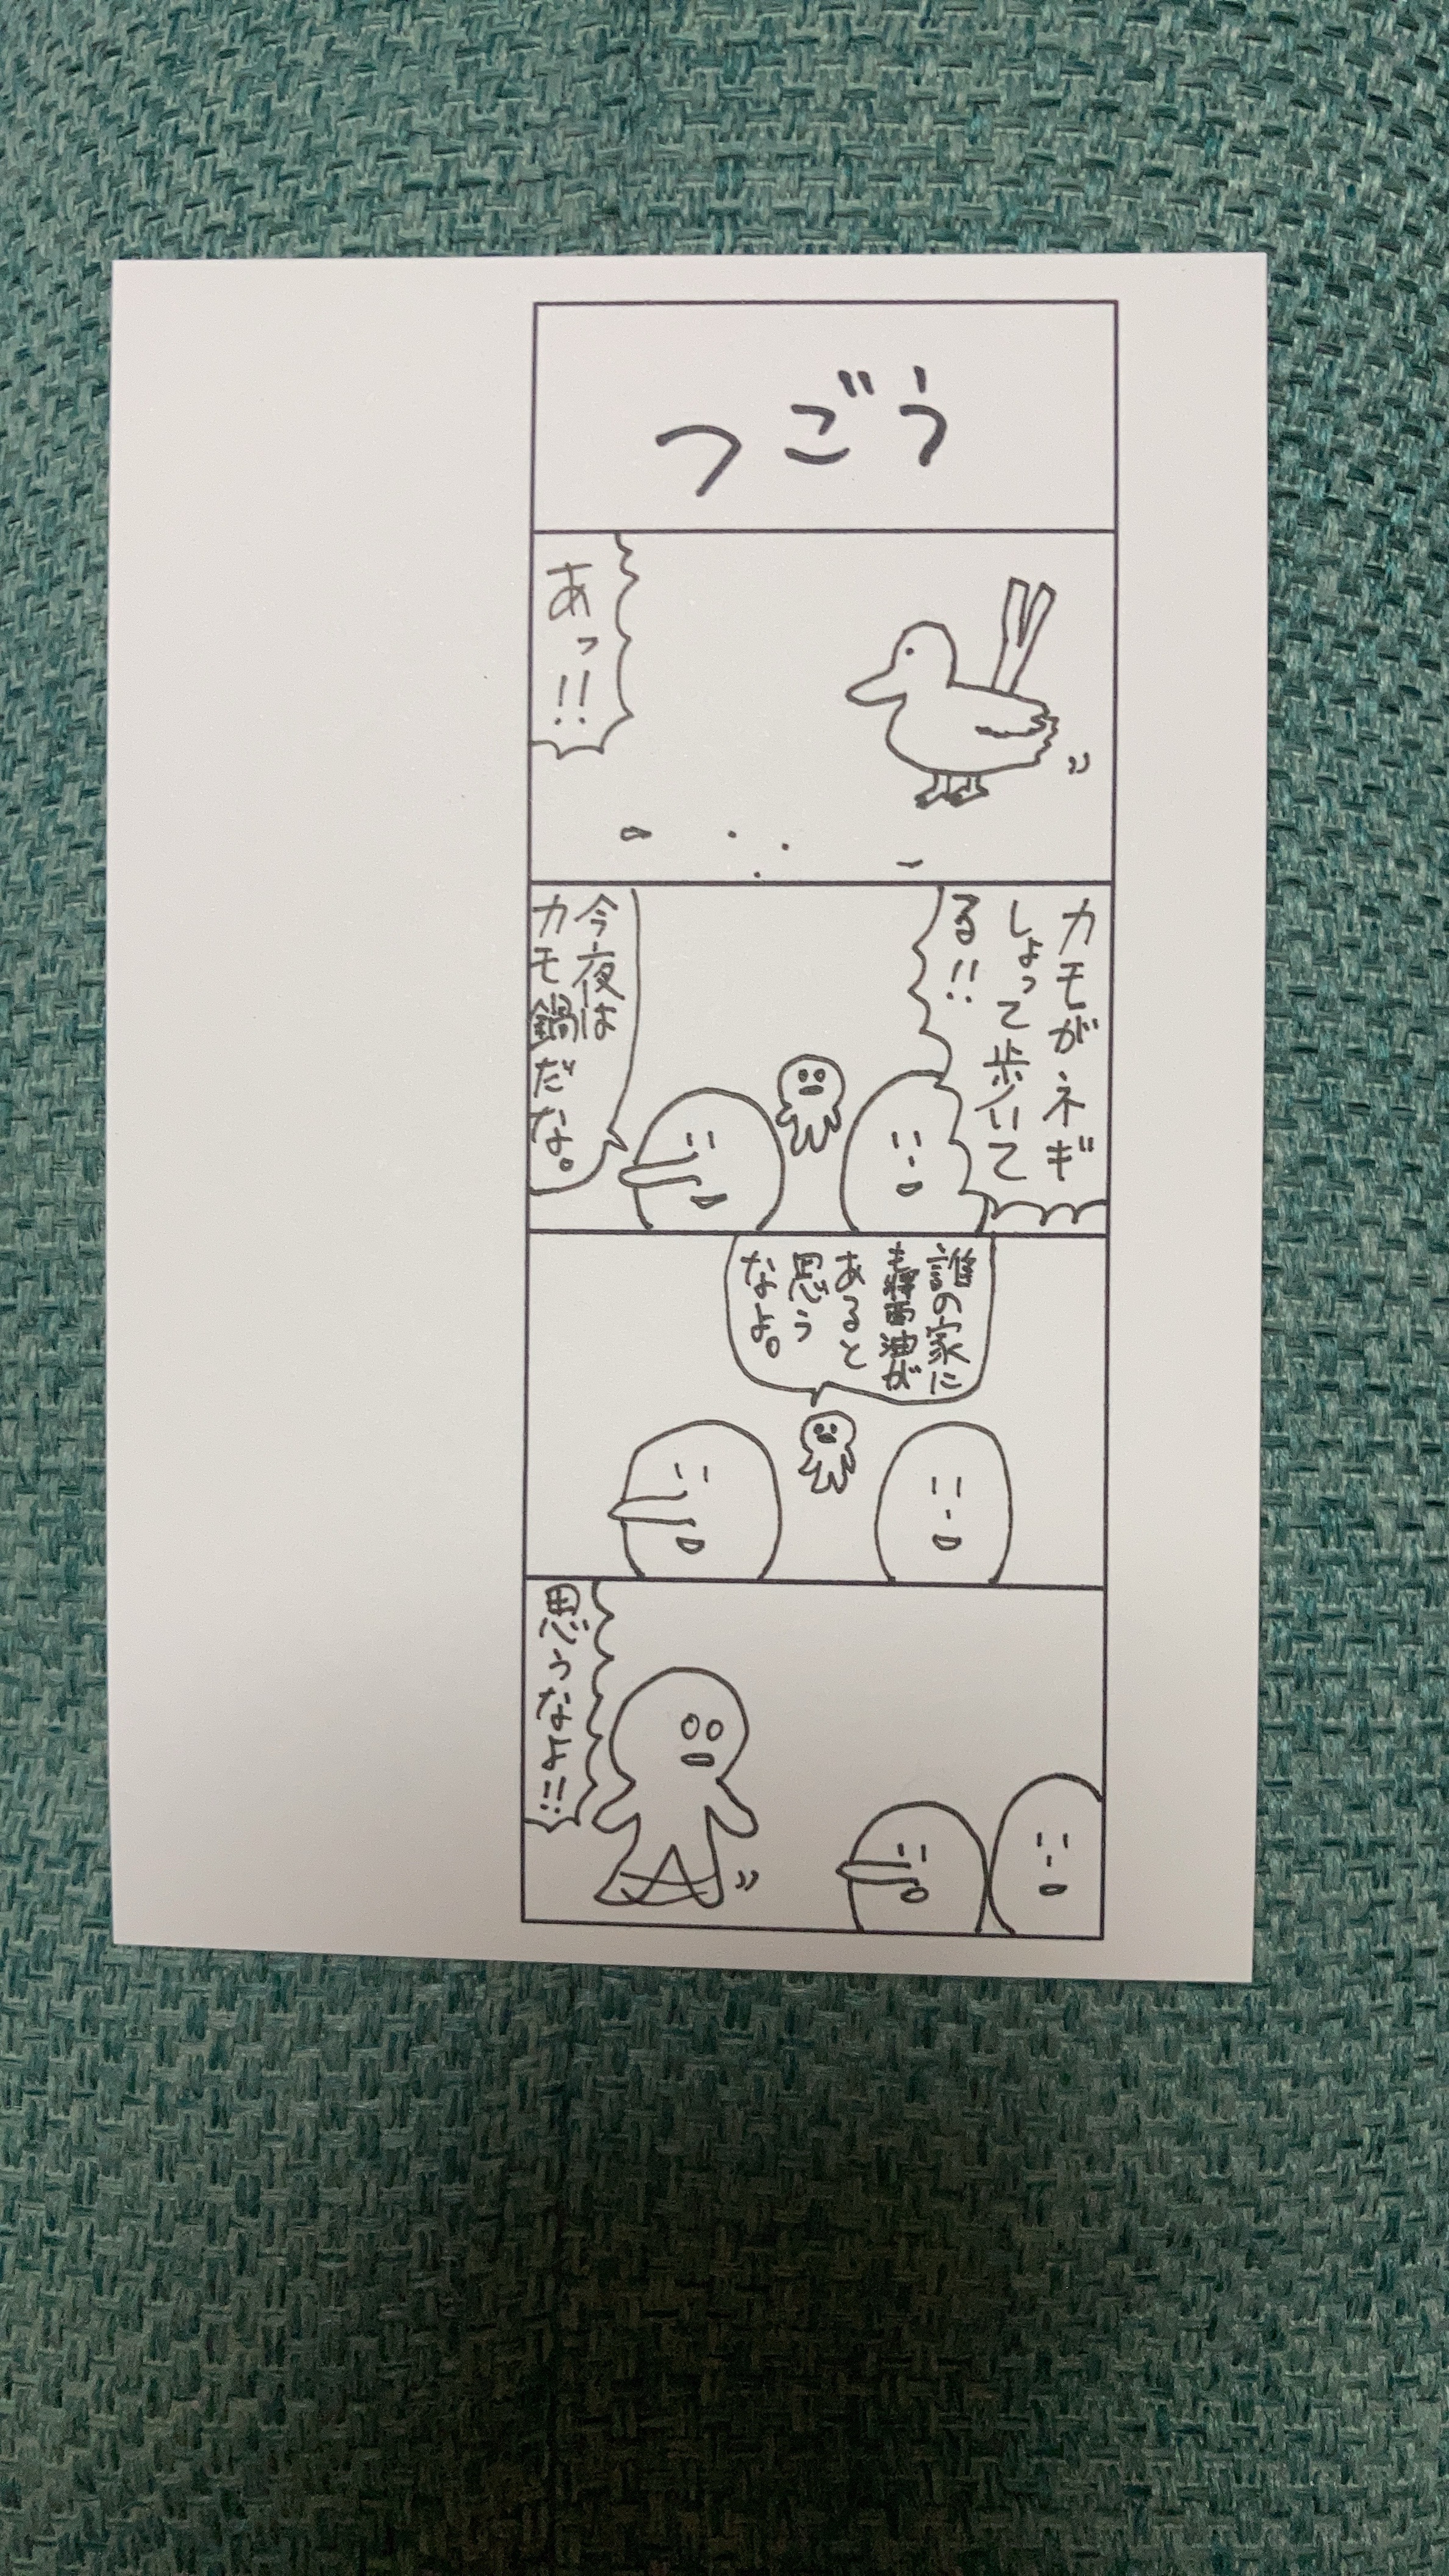 つごう
あっ!!
カモがネギ
しょって歩いて
る!!
今夜は
カモ鍋だな。
誰の家に
も醤油が
あると
思う
なよ。
思うなよ!!